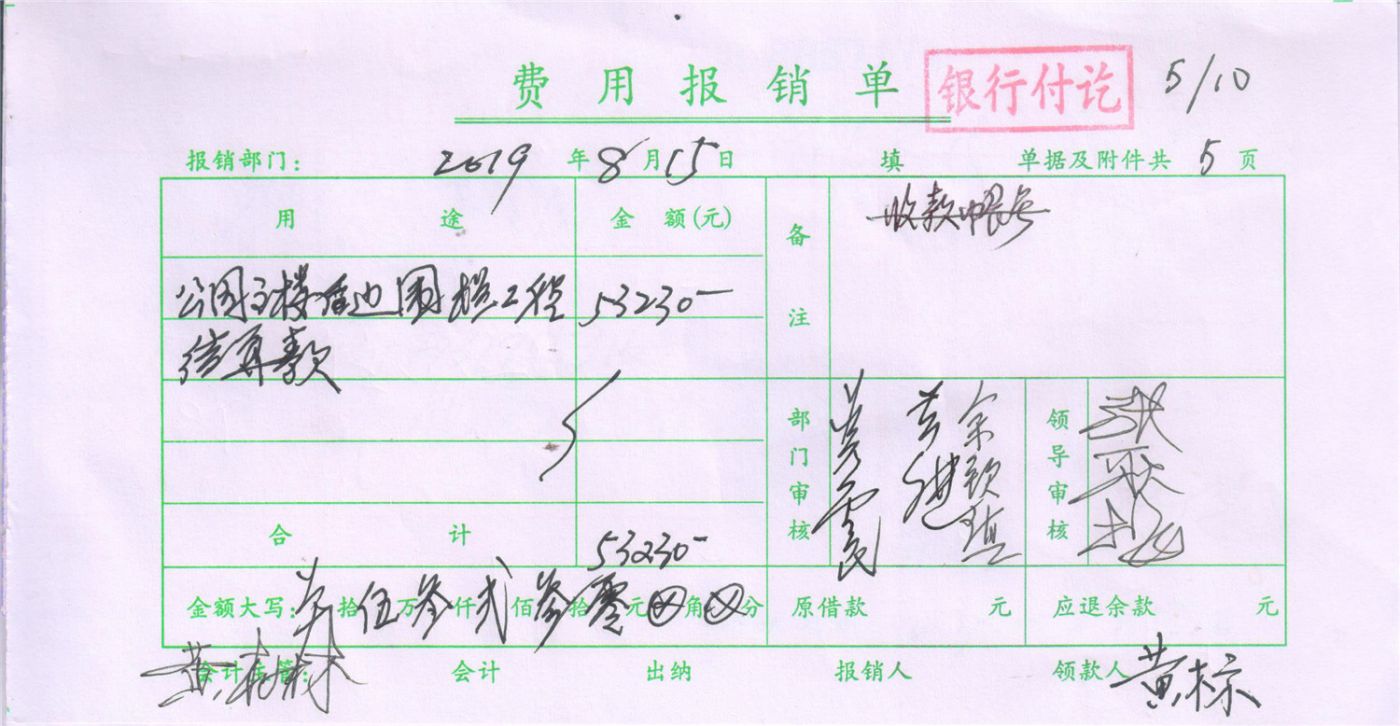 费用报销单 银行付讫 5/10
报销部门: 2019年8月15日 填 单据及附件共5页
用途 金额(元) 备注 收款帐号
公园主楼后边围栏工程 53230-
结算款
部门审核 领导审核
合计 53230-
金额大写: 拾伍万叁仟贰佰叁拾零元⊗角⊗分 原借款 元 应退余款 元
会计主管: 会计 出纳 报销人 领款人 黄标